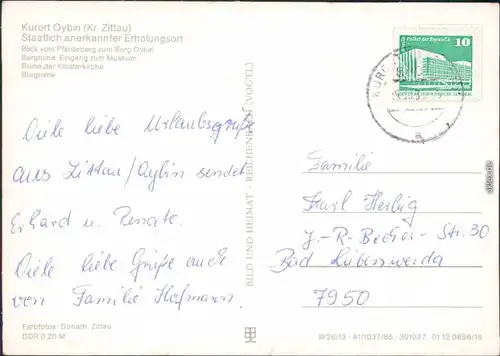 Kurort Oybin (Kr. Zittau)
Staatlich anerkannter Erholungsort
Blick vom Pferdeberg zum Berg Oybin
Burgruine, Eingang zum Museum
Blick der Klosterkirche
Burgruine
Viele liebe Urlaubsgrüße
aus Zittau/Oybin sendet
Erhard u. Renate.
Viele liebe Grüße auch
von Familie Hofmann.
Farbfotos: Donath, Zittau
DDR 0,20 M
BILD UND HEIMAT · REICHENBACH (VOGTL)
10
Familie
Karl Herbig
J.-R-Becher-Str. 30
Bad Liebenwerda
7950
III/26/13 · A1/1037/85 · 301037 01 12 0896/16